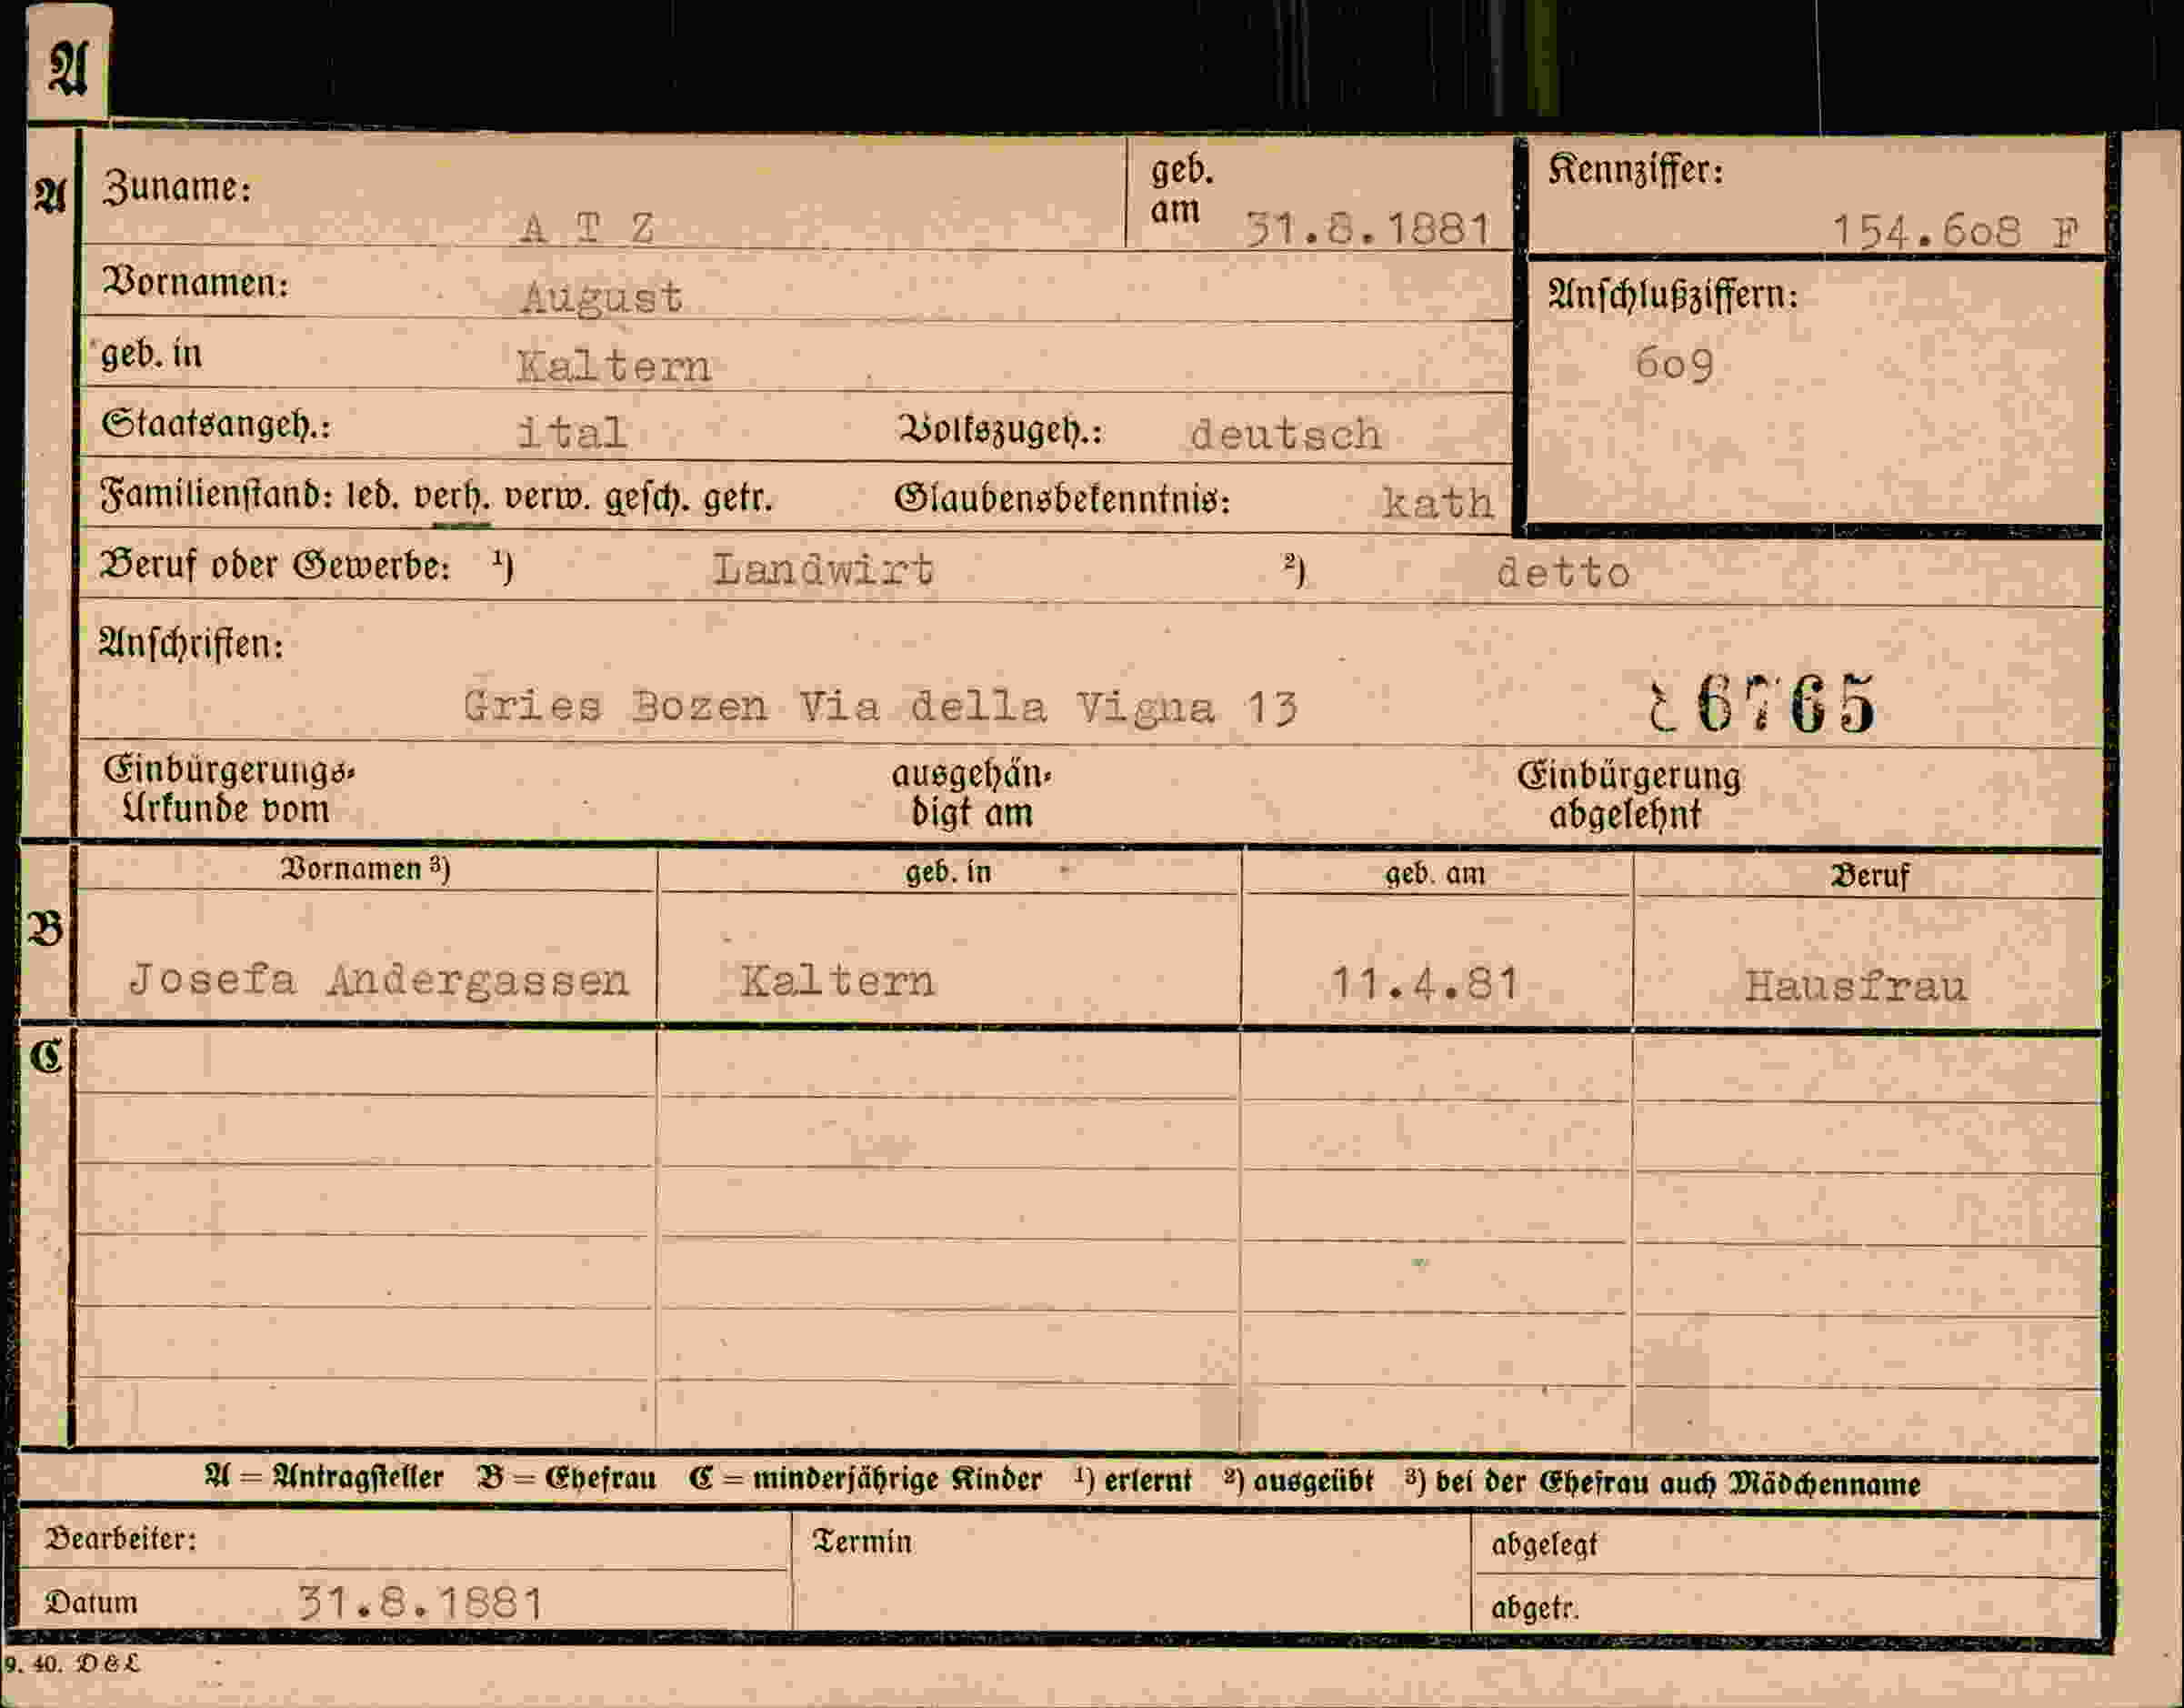 A
A Zuname: A T Z geb. am 31.8.1881 Kennziffer: 154.608 F
Vornamen: August Anschlußziffern:
geb. in Kaltern 609
Staatsangeh.: ital Volkszugeh.: deutsch
Familienstand: led. verh. verw. gesch. getr. Glaubensbekenntnis: kath
Beruf oder Gewerbe: ¹) Landwirt ²) detto
Anschriften:
Gries Bozen Via della Vigna 13 6765
Einbürgerungs- ausgehän- Einbürgerung
Urkunde vom digt am abgelehnt
Vornamen ³) geb. in geb. am Beruf
B
Josefa Andergassen Kaltern 11.4.81 Hausfrau
C
A = Antragsteller B = Ehefrau C = minderjährige Kinder ¹) erlernt ²) ausgeübt ³) bei der Ehefrau auch Mädchenname
Bearbeiter: Termin abgelegt
Datum 31.8.1881 abgetr.
9. 40. D & L